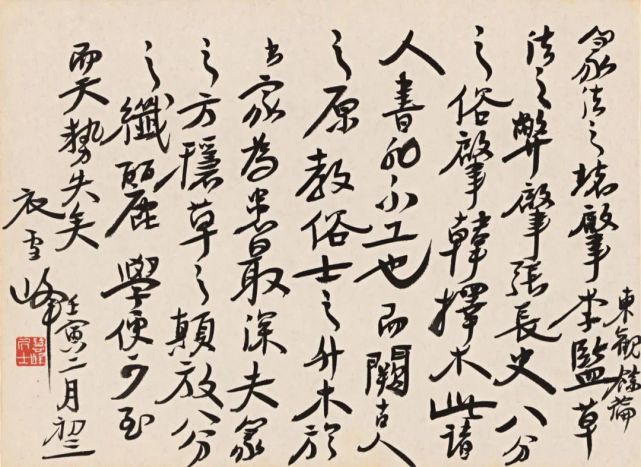 篆法之壞肇李監草
東觀餘論
法之弊肇張長史八分
之俗肇韓擇木此諸
人書非不工也而闕古人
之原教俗士之升木於
書家為患最深夫篆
之方穩草之顛放八分
之纖麗學便可至
而天勢失矣
衣雪峰
壬寅二月初